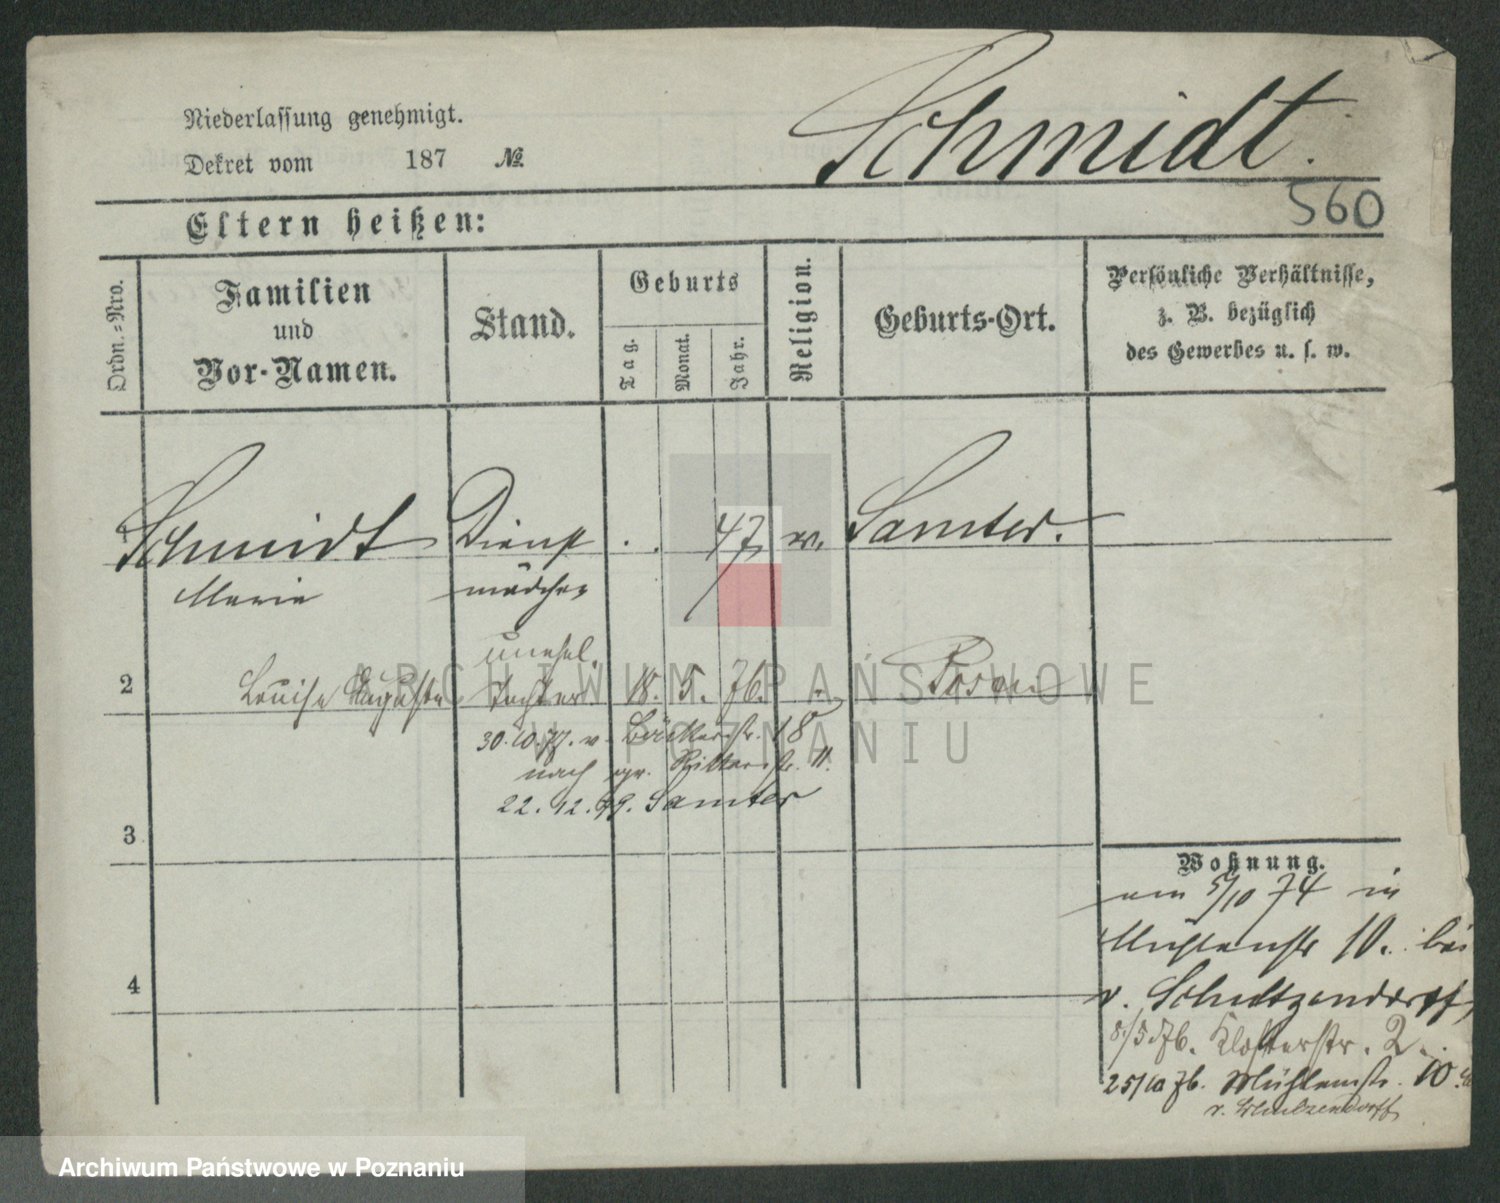 Schmidt.
Niederlassung genehmigt.
Dekret vom 187 №
560
Eltern heißen:
Ordn.-Nro.
Familien
und
Vor-Namen.
Stand.
Geburts
Tag.
Monat.
Jahr.
Religion.
Geburts-Ort.
Persönliche Verhältnisse,
z. B. bezüglich
des Gewerbes u. s. w.
1 Schmidt Dienst . . 47 Samter.
Marie mädchen
unehel.
2 Louise Auguste Tochter. 18. 5. 76. " Posen
30.10.77. v. Bäckerstr. 18
nach gr. Ritterstr. 11.
22.12.79. Samter
3
4
Wohnung.
am 5/10 74 in
Mühlenstr 10. bei
v. Schultzendorff,
8/5 76. Klosterstr. 2.
25/10 76. Mühlenstr. 10.
v. Schulzendorff
ARCHIWUM PAŃSTWOWE
W POZNANIU
Archiwum Państwowe w Poznaniu